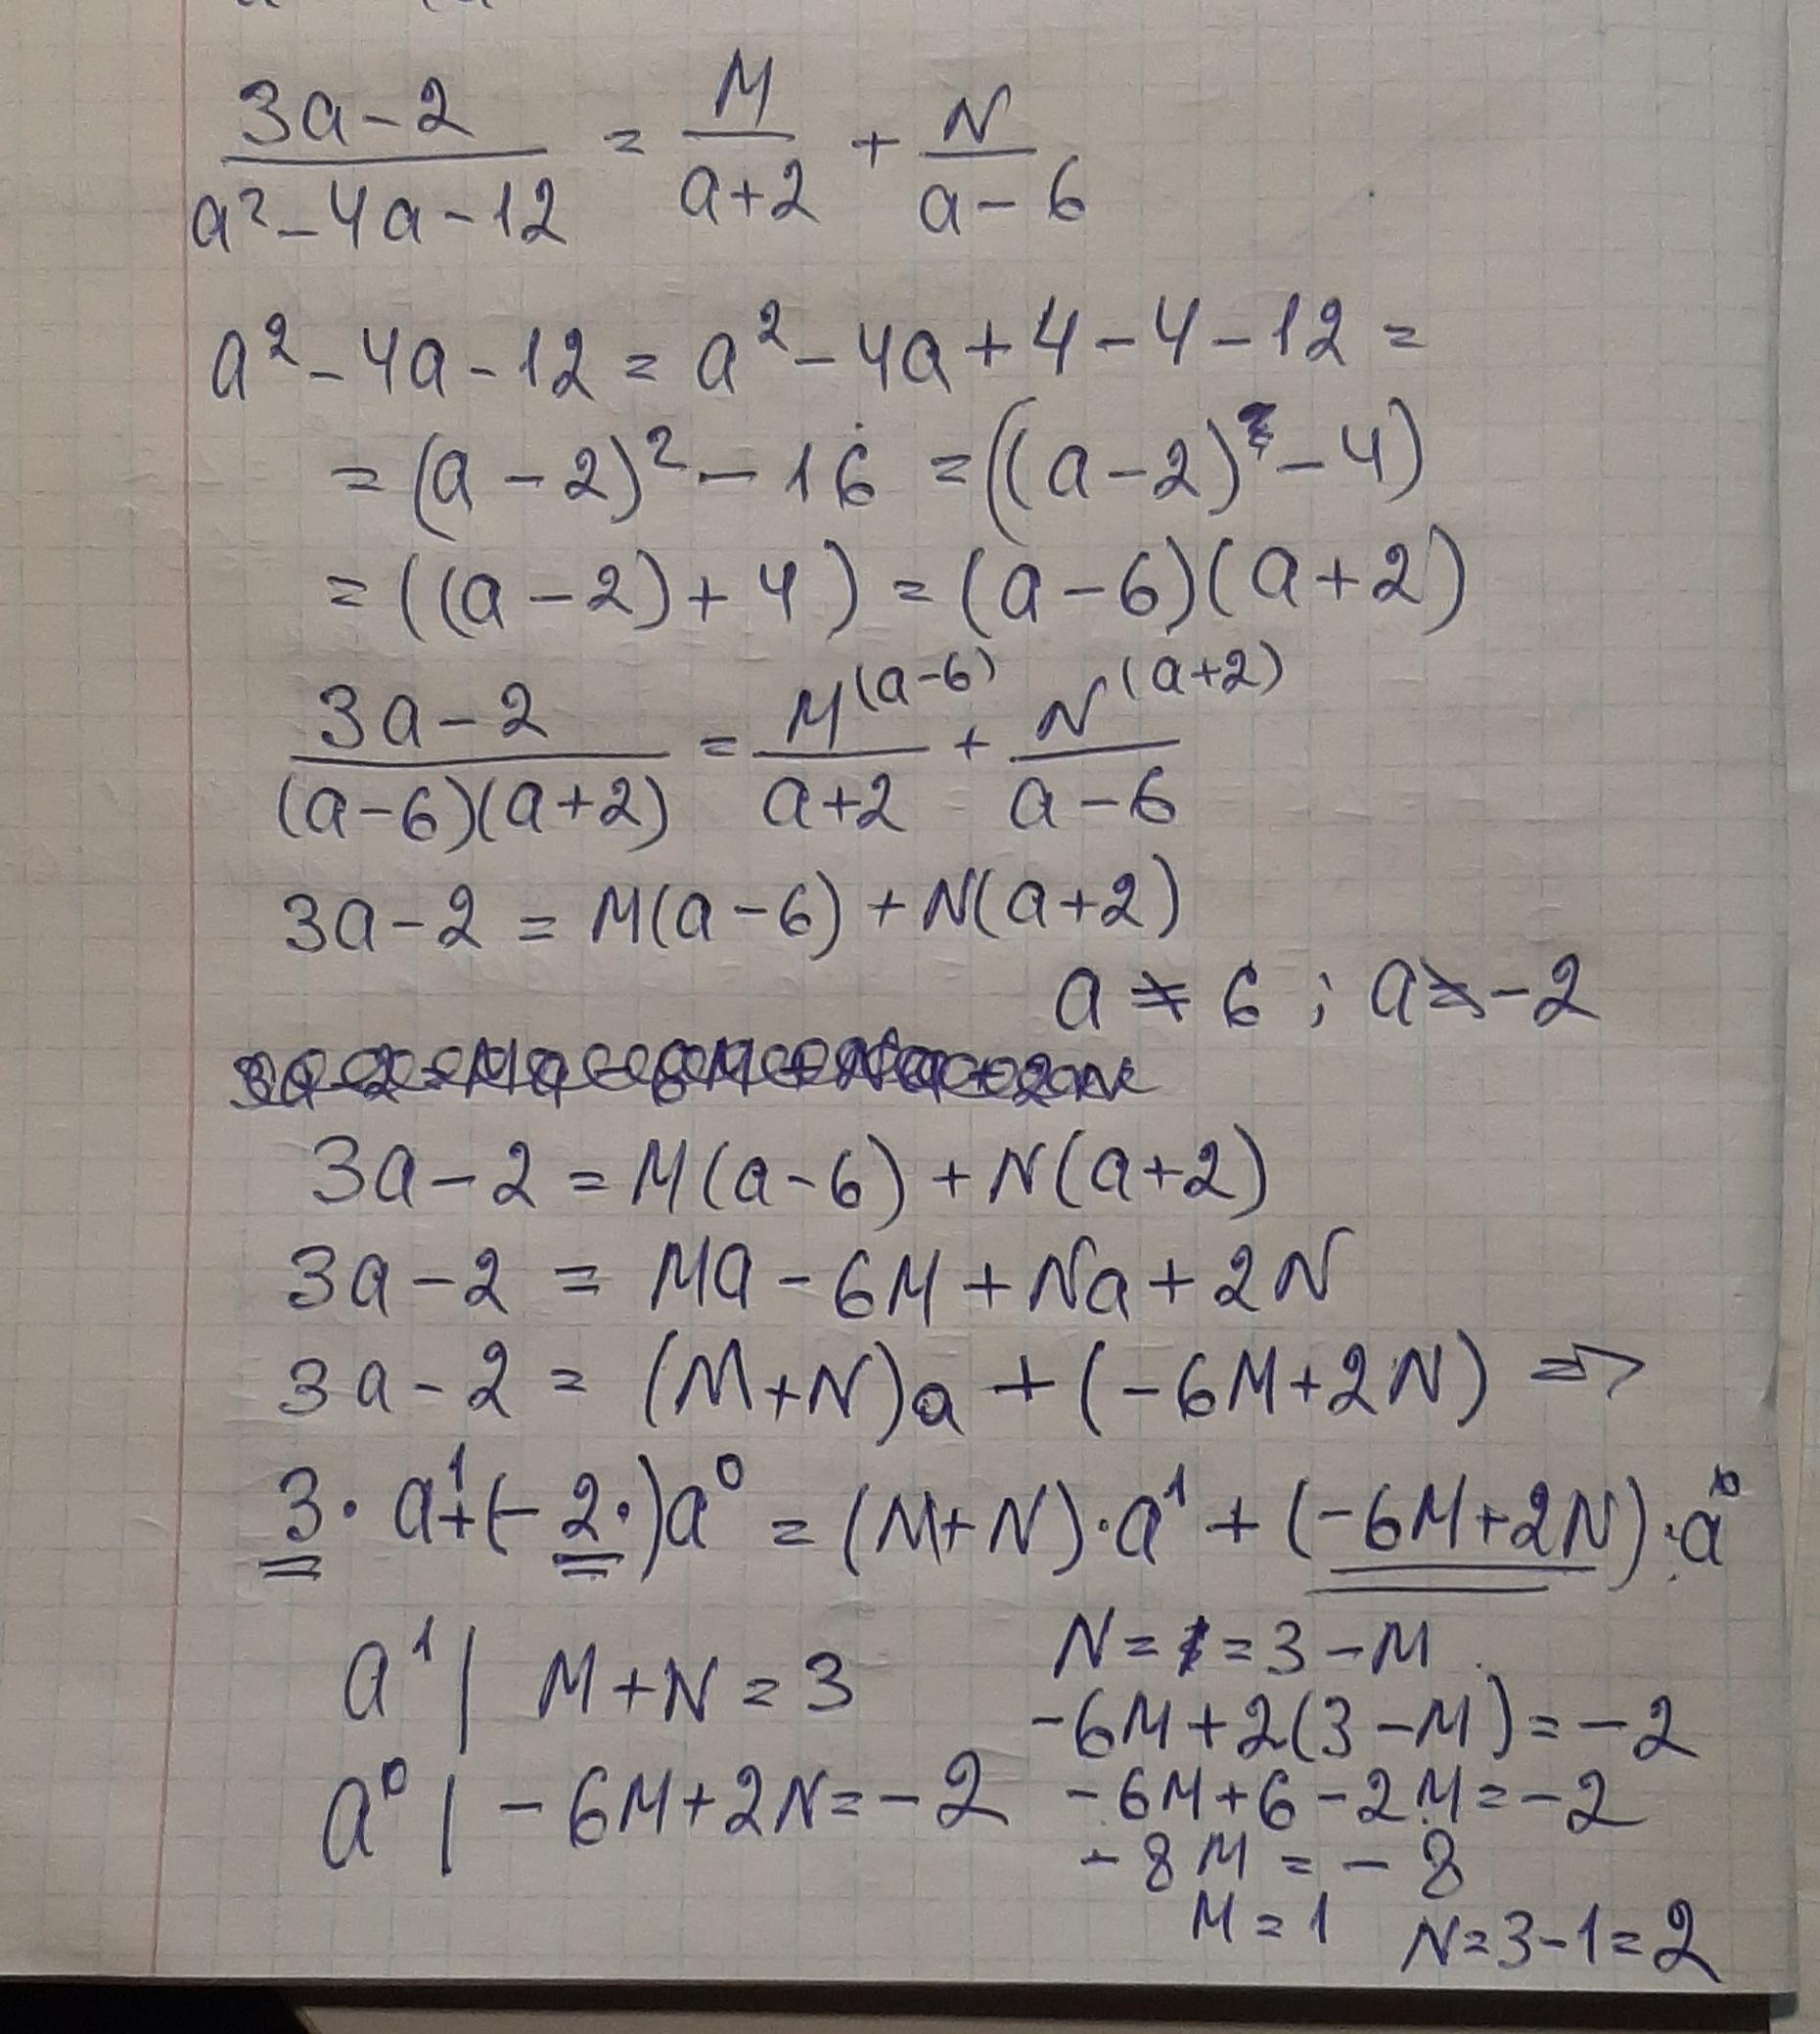 3a-2/a²-4a-12 = M/a+2 + N/a-6
a²-4a-12 = a²-4a+4-4-12 =
= (a-2)²-16 = ((a-2)-4)
= ((a-2)+4) = (a-6)(a+2)
3a-2/(a-6)(a+2) = M^(a-6)/a+2 + N^(a+2)/a-6
3a-2 = M(a-6)+N(a+2)
a≠6; a≠-2
3a-2 = M(a-6)+N(a+2)
3a-2 = Ma-6M+Na+2N
3a-2 = (M+N)a+(-6M+2N) ⇒
3·a¹+(-2·)a⁰ = (M+N)·a¹+(-6M+2N)·a⁰
a¹| M+N=3
a⁰| -6M+2N=-2
N= =3-M
-6M+2(3-M)=-2
-6M+6-2M=-2
-8M=-8
M=1 N=3-1=2